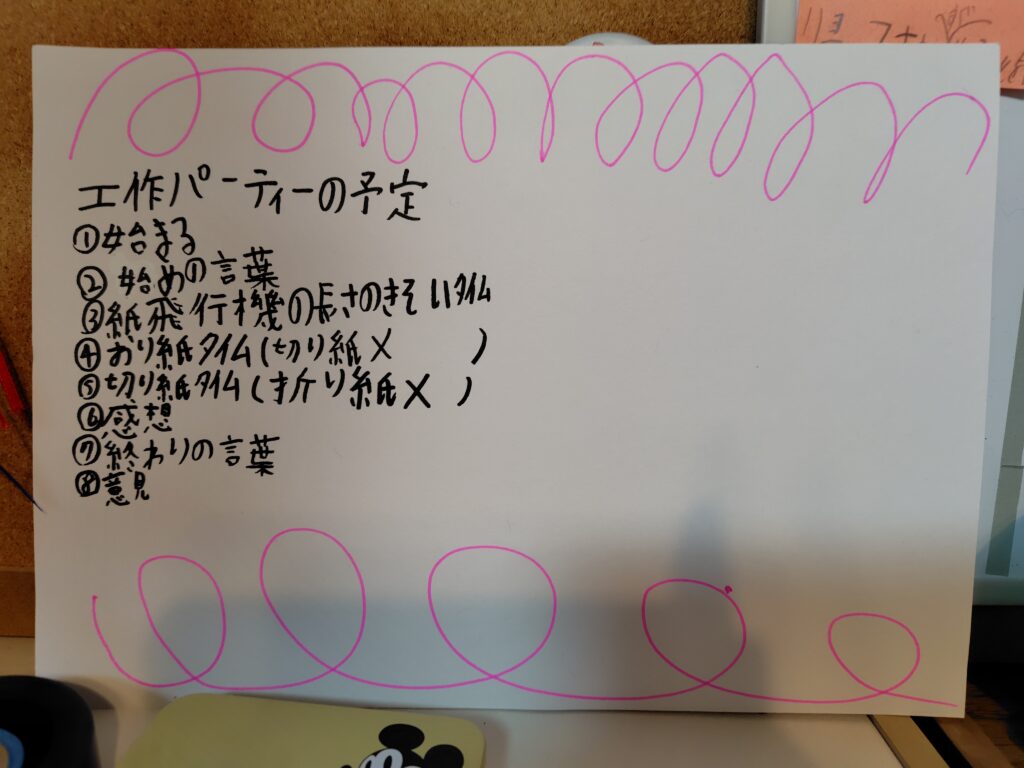 工作パーティーの予定
①始まる
②始めの言葉
③紙飛行機の長さのきそいタイム
④おり紙タイム(切り紙×　　)
⑤切り紙タイム(折り紙×　)
⑥感想
⑦終わりの言葉
⑧意見